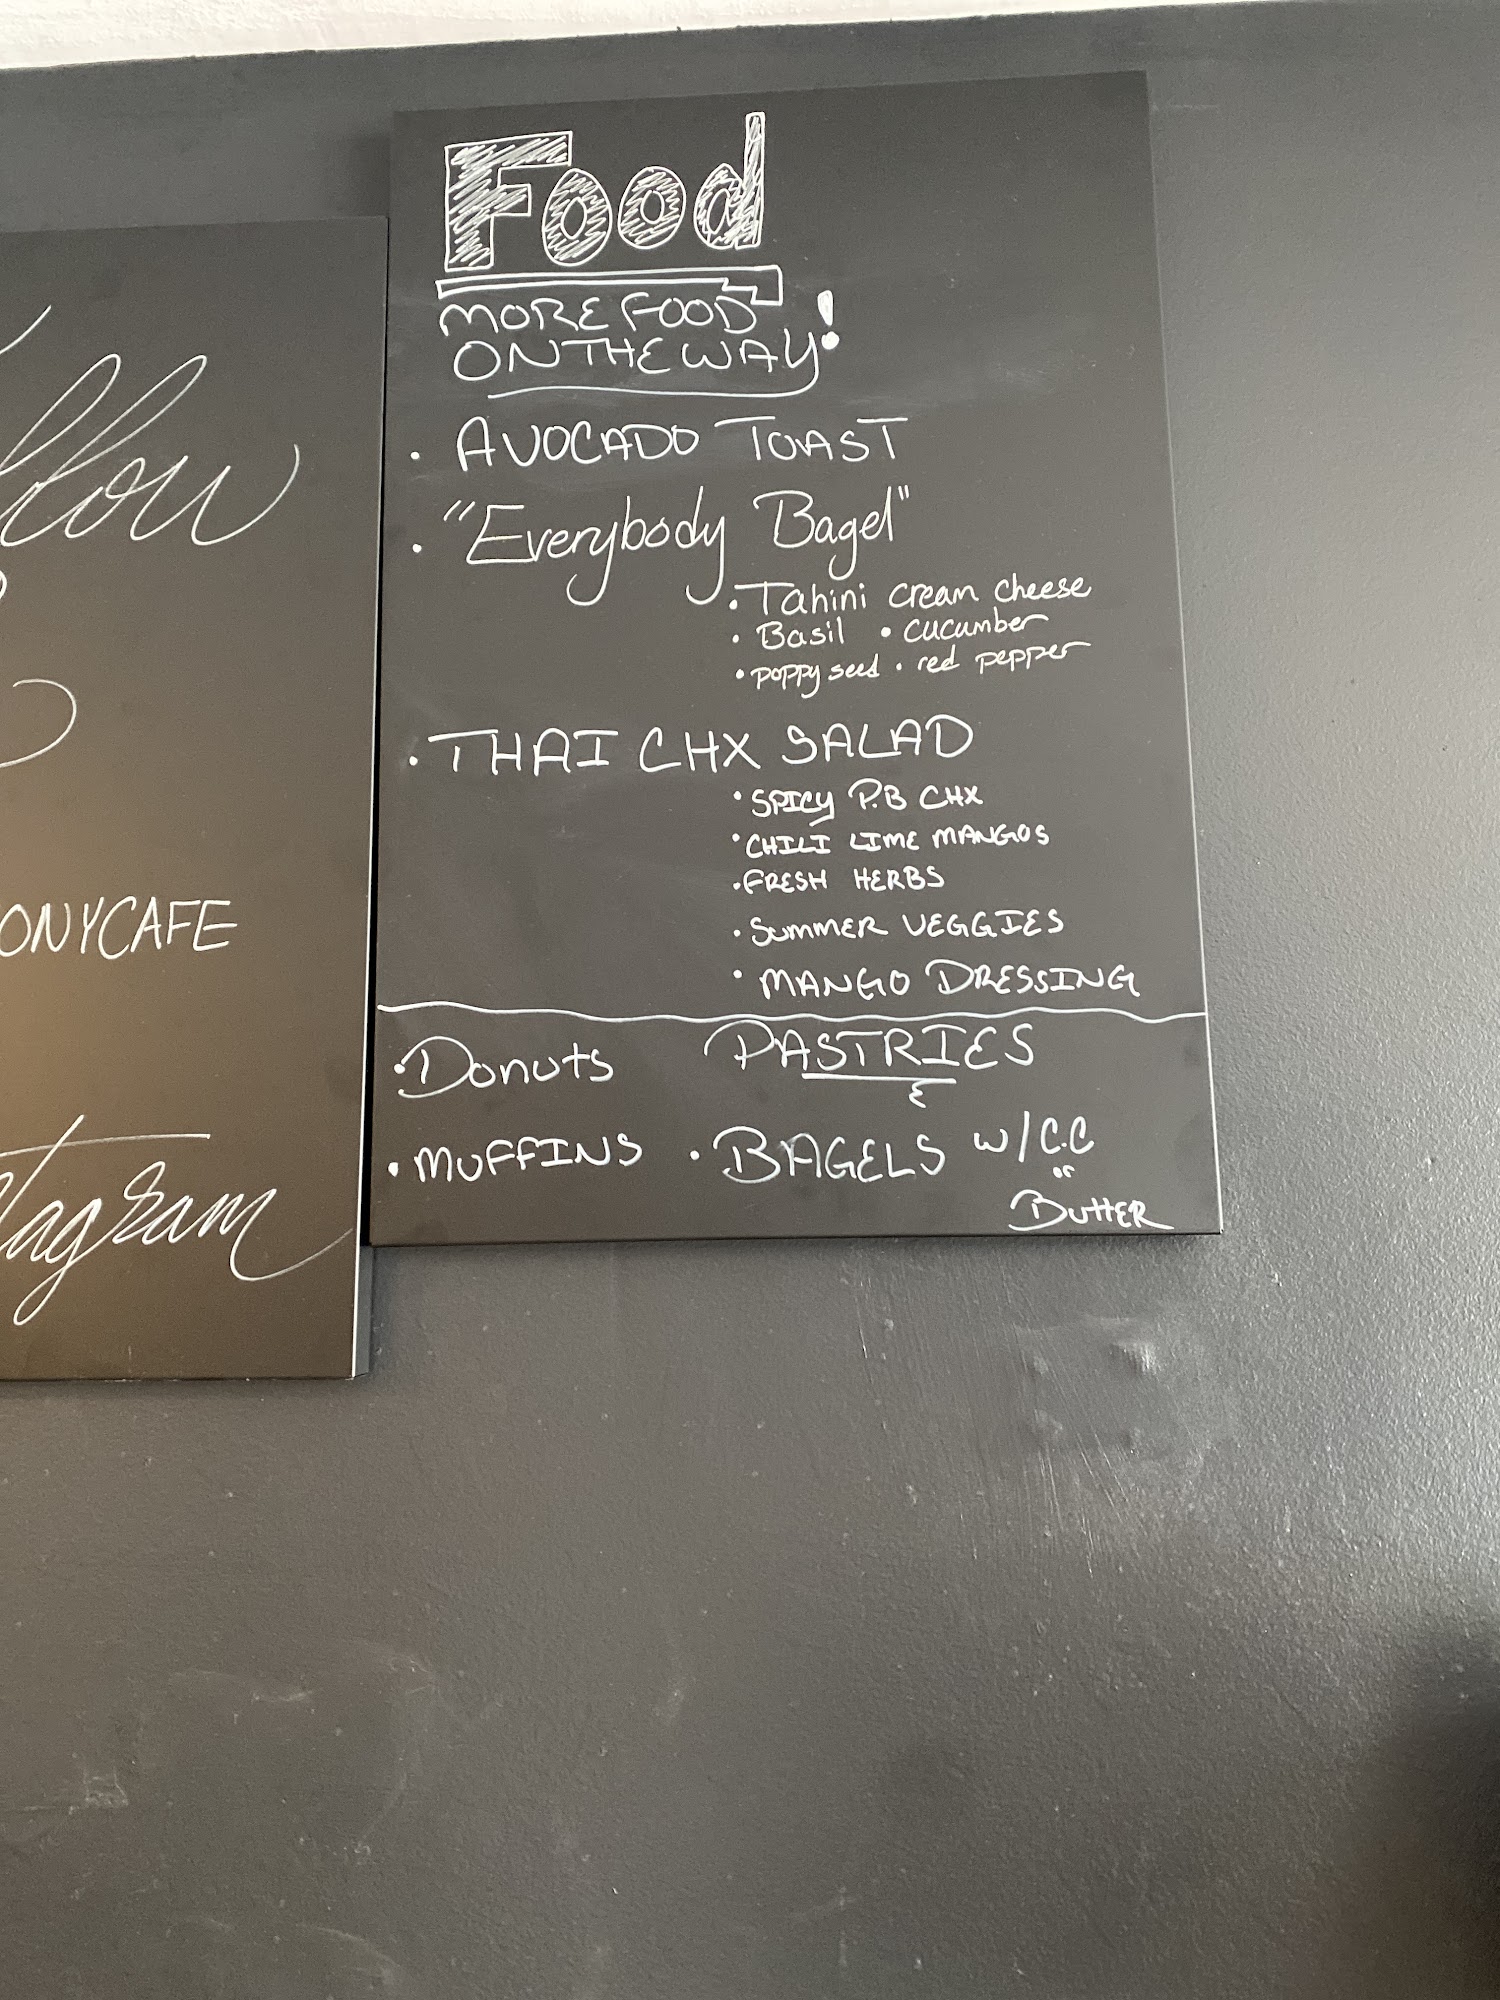 Food
MORE FOOD
ON THE WAY!
• AVOCADO TOAST
• "Everybody Bagel"
• Tahini cream cheese
• Basil • cucumber
• poppy seed • red pepper
• THAI CHX SALAD
• SPICY P.B CHX
• CHILI LIME MANGOS
• FRESH HERBS
• SUMMER VEGGIES
• MANGO DRESSING
PASTRIES
&
• Donuts
• MUFFINS • BAGELS w/ C.C
or
BUTTER
ONYCAFE
tagram